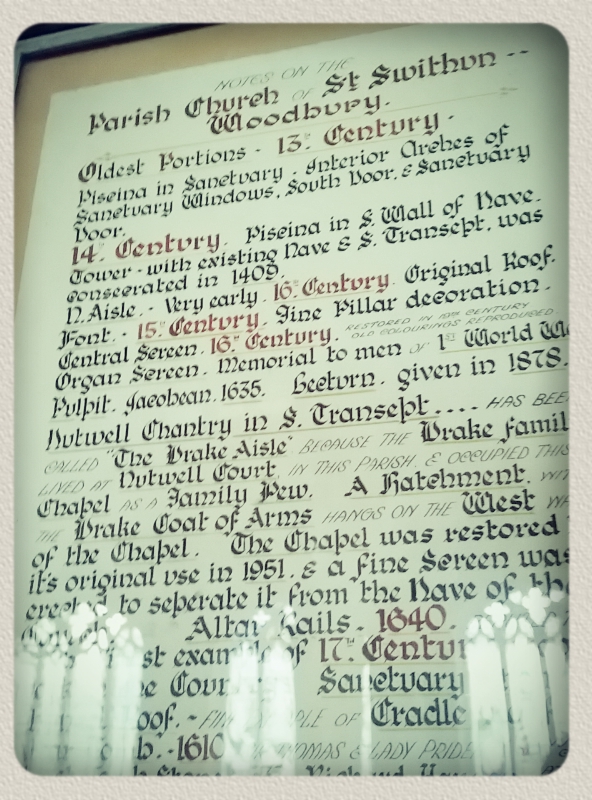 NOTES ON THE
Parish Church OF St Swithun --
Woodbury.
Oldest Portions - 13th Century.
Piscina in Sanctuary. Interior Arches of
Sanctuary Windows, South Door, & Sanctuary
Door.
14th Century. Piscina in S. Wall of Nave.
Tower - with existing Nave & S. Transept, was
consecrated in 1409.
N. Aisle. - Very early. 16th Century. Original Roof.
Font. - 15th Century. Fine Pillar decoration.
Central Screen. 16th Century. RESTORED IN 19TH CENTURY OLD COLOURINGS REPRODUCED.
Organ Screen. Memorial to men OF 1st World
Pulpit. Jacobean. 1635. Lecturn. given in 1878.
Nutwell Chantry in S. Transept.... HAS BEE
CALLED "The Drake Aisle" BECAUSE THE Drake Famil
LIVED AT Nutwell Court, IN THIS PARISH, & OCCUPIED THIS
Chapel AS A Family Pew. A Hatchment,
THE Drake Coat of Arms HANGS ON THE West
of the Chapel. The Chapel was restored
it's original use in 1951, & a fine Screen was
erected to seperate it from the Nave of the
Altar Rails. 1640.
st example of 17th Centu
Sanctuary
oof. - OF Cradle
1610 THOMAS & LADY PRIDE